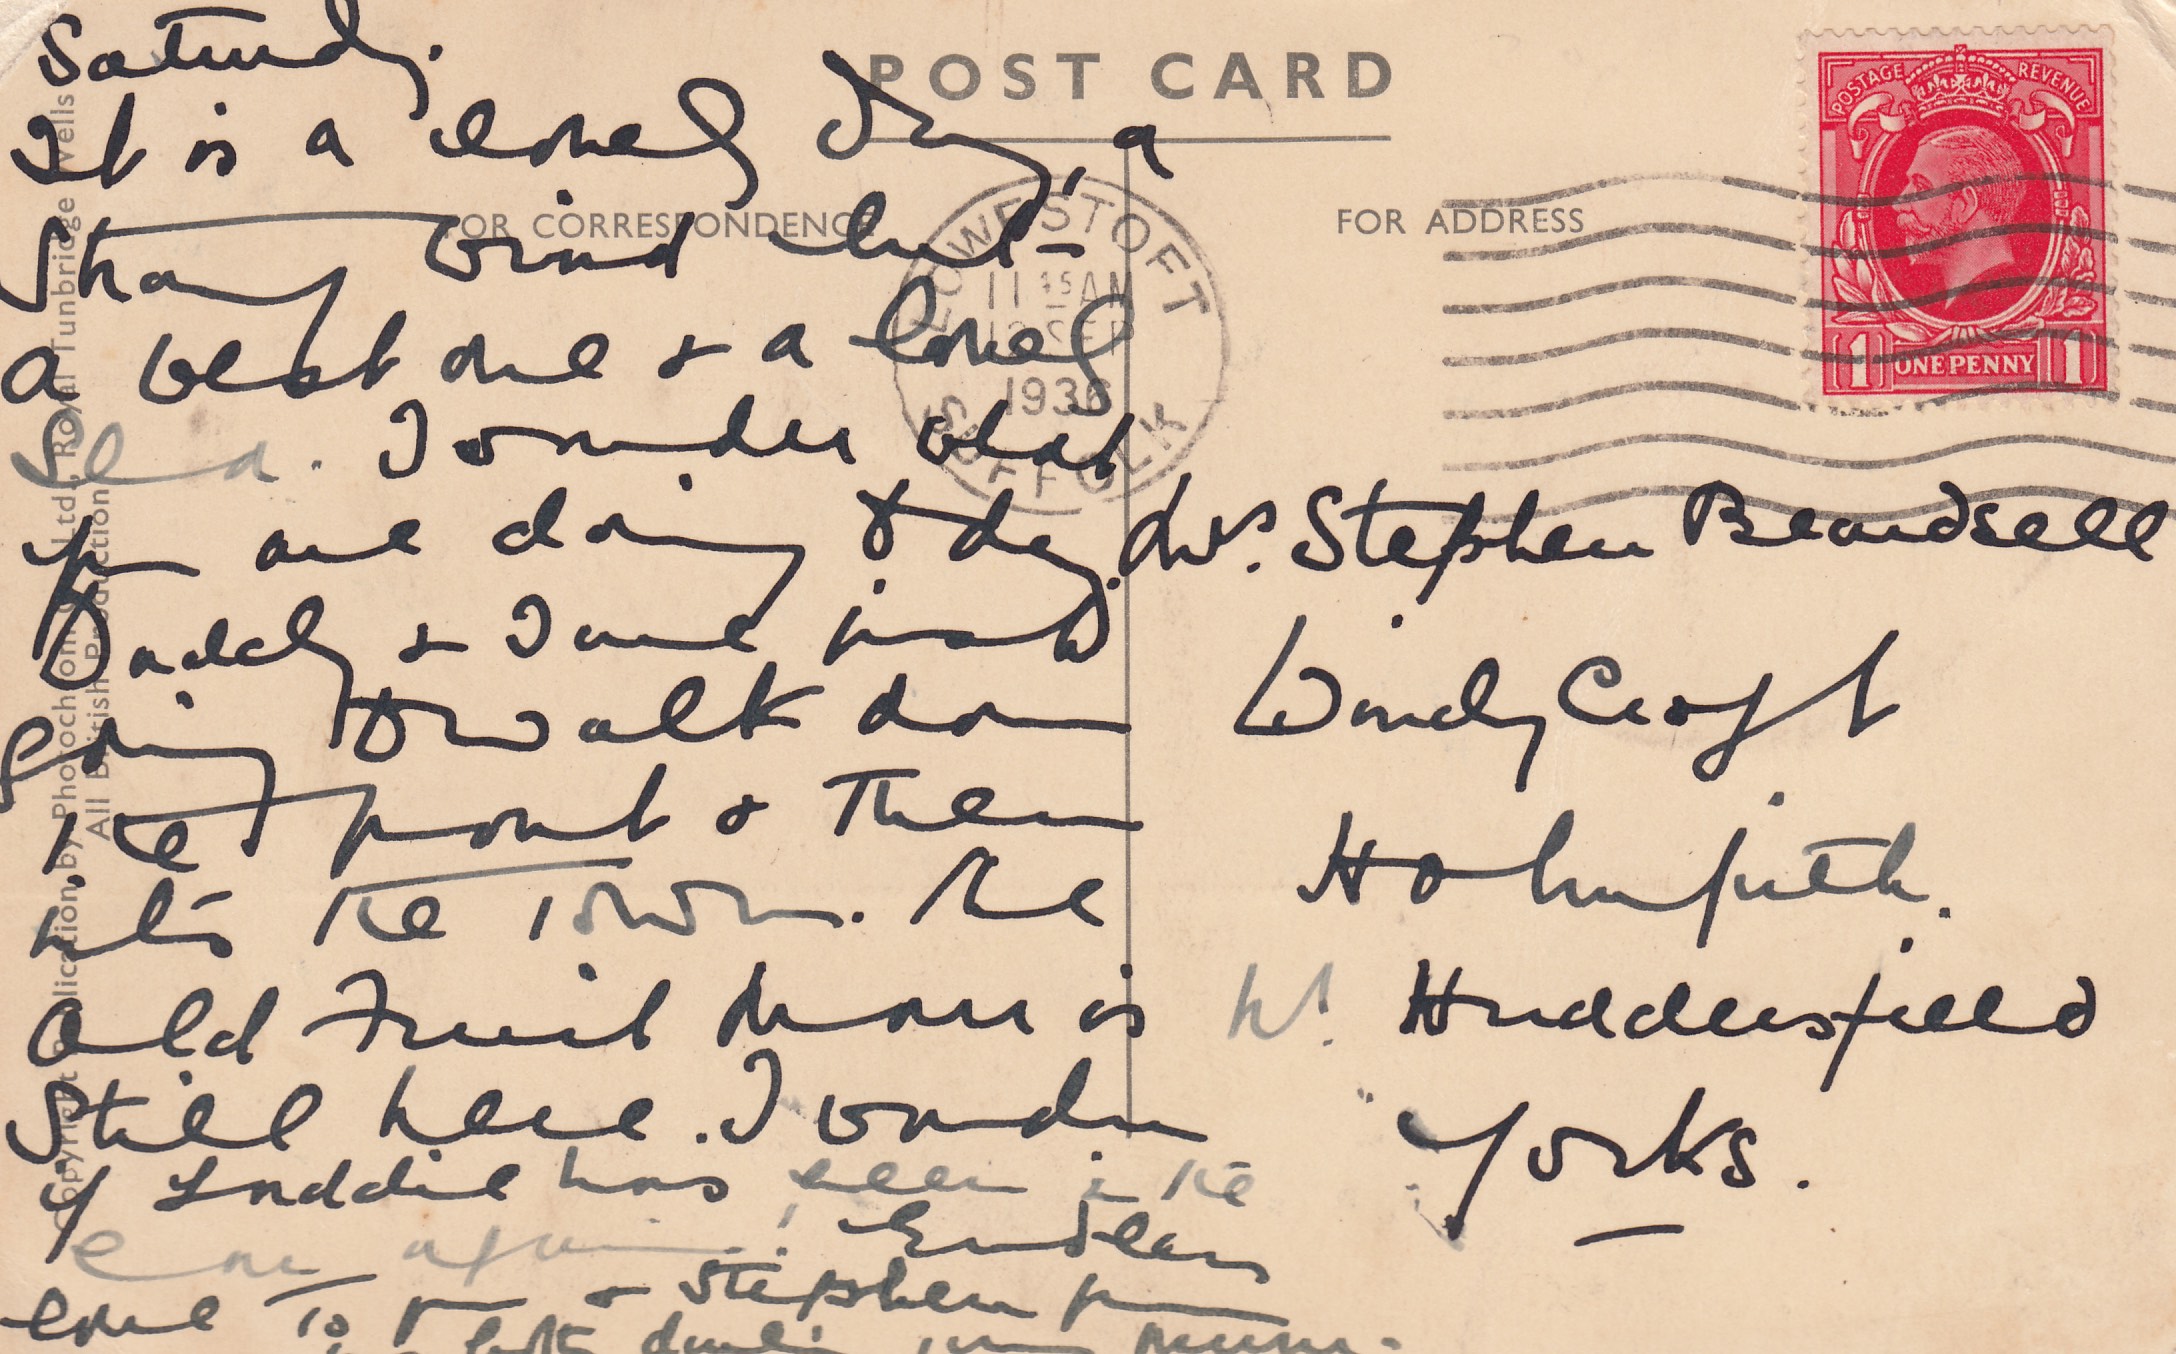 POST CARD
FOR CORRESPONDENCE
FOR ADDRESS
POSTAGE REVENUE
1 ONE PENNY 1
LOWESTOFT
11 45 AM
SEP
1936
SUFFOLK
Saturday.
It is a lovely day, a
strong wind but
a west one & a lovely
sea. I wonder what
you are doing to day.
Daddy & I are just
going to walk down
the front & then
into the town. The
old Fruit man is
still here. I wonder
if Laddie has been in the
car again. Endless
love to you & Stephen from
both darling mum.
Mrs. Stephen Beardsell
Windy Croft
Holmfirth.
Nr. Huddersfield
Yorks.
Copyright Publication by Photochrom Co. Ltd., Royal Tunbridge Wells
All British Production